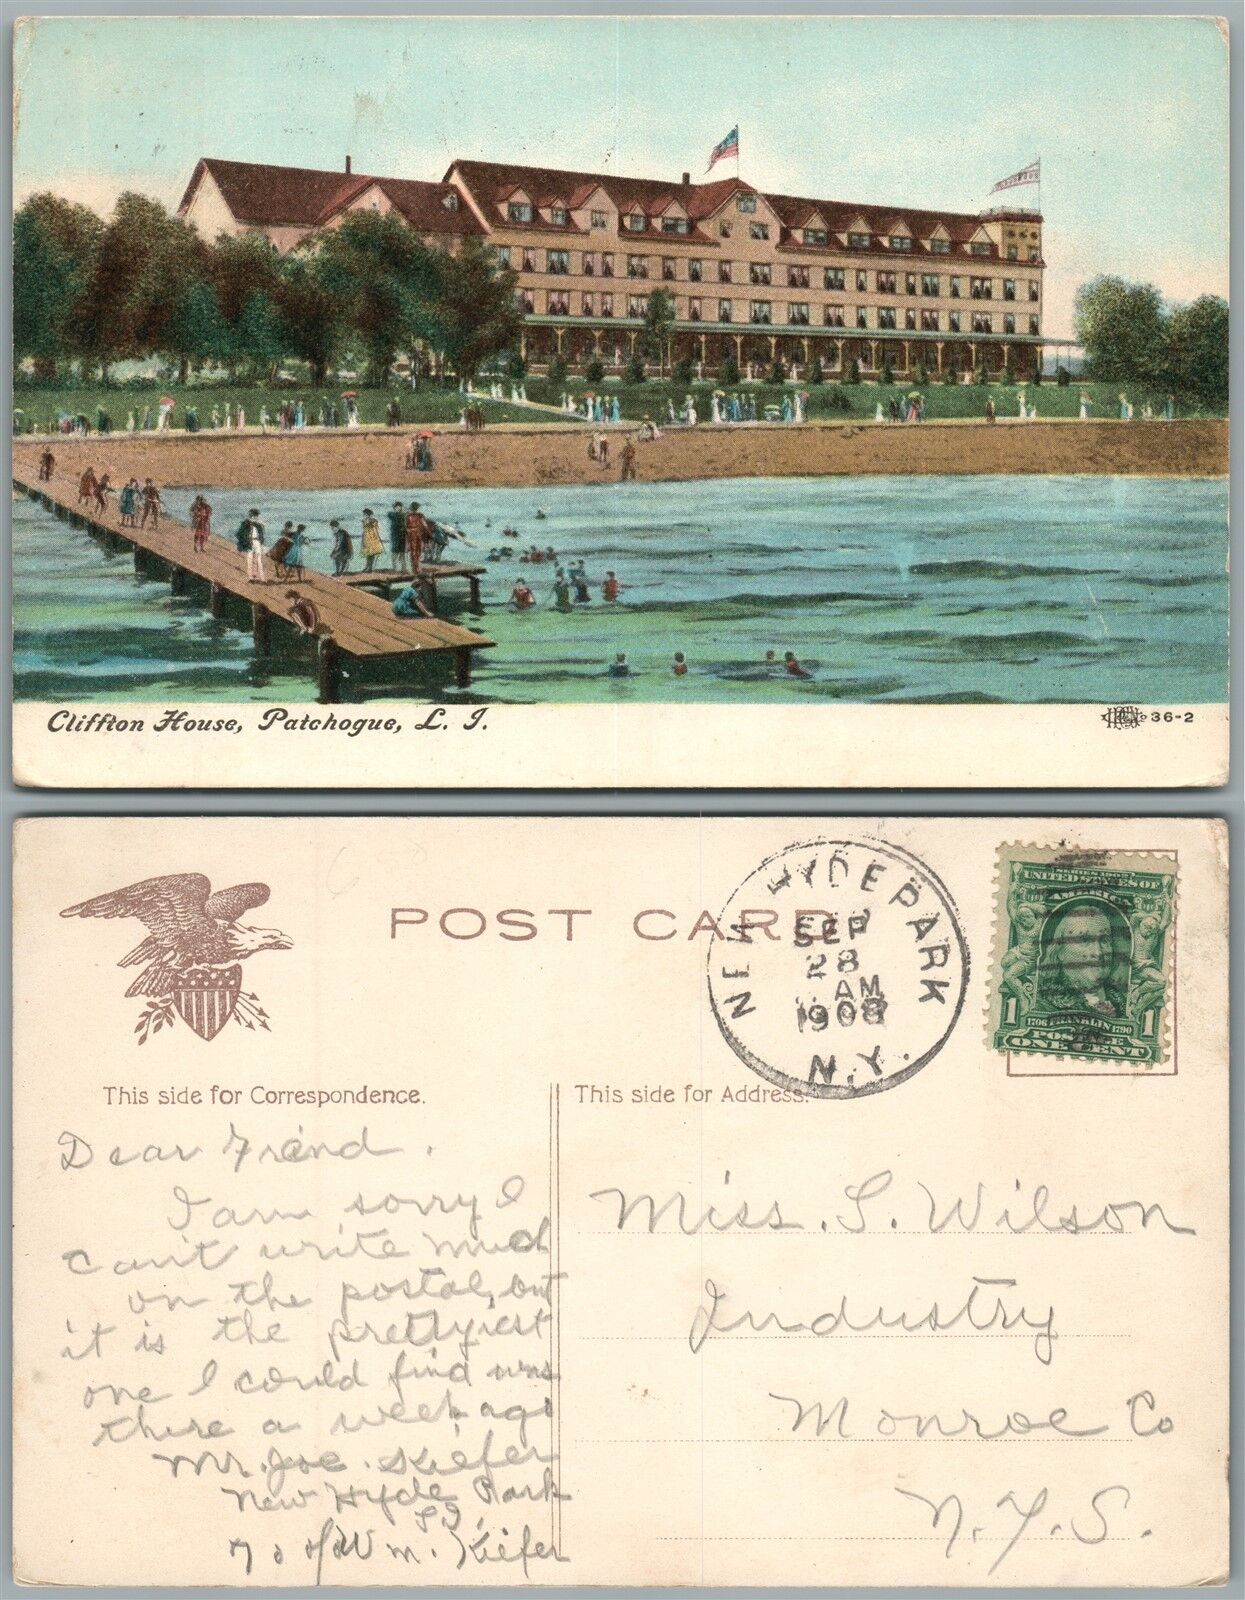 Cliffton House, Patchogue, L. I.
No 36-2
POST CARD
NEW HYDE PARK
SEP
28
AM
1908
N.Y.
SERIES 1902
UNITED STATES OF
AMERICA
1 1706 FRANKLIN 1790 1
POSTAGE
ONE CENT
This side for Correspondence.
This side for Address.
Dear Freind.
I am sorry I
can't write much
on the postal, but
it is the prettyiest
one I could find was
there a week ago
Mr. Joe. Kiefer
New Hyde Park
L I.
Wm. Kiefer
Miss. S. Wilson
Industry
Monroe Co
N.Y.S.